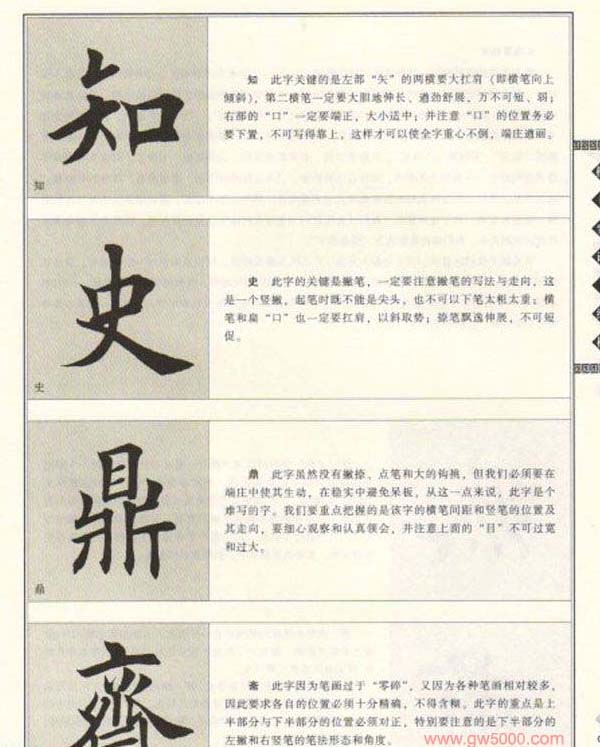 知
知
知 此字关键的是左部“矢”的两横要大扛肩（即横笔向上
倾斜），第二横笔一定要大胆地伸长、遒劲舒展，万不可短、弱；
右部的“口”一定要端正，大小适中；并注意“口”的位置务必
要下置，不可写得靠上，这样才可以使全字重心不倒，端庄遒丽。
史
史
史 此字的关键是撇笔，一定要注意撇笔的写法与走向，这
是一个竖撇，起笔时既不能是尖头，也不可以下笔太粗太重；横
笔和扁“口”也一定要扛肩，以斜取势；捺笔飘逸伸展，不可短
促。
鼎
鼎
鼎 此字虽然没有撇捺、点笔和大的钩挑，但我们必须要在
端庄中使其生动，在稳实中避免呆板，从这一点来说，此字是个
难写的字。我们要重点把握的是该字的横笔间距和竖笔的位置及
其走向，要细心观察和认真领会，并注意上面的“目”不可过宽
和过大。
齋
斋 此字因为笔画过于“零碎”，又因为各种笔画相对较多，
因此要求各自的位置必须十分精确，不得含糊。此字的重点是上
半部分与下半部分的位置必须对正，特别要注意的是下半部分的
左撇和右竖笔的笔法形态和角度。
www.gw5000.com